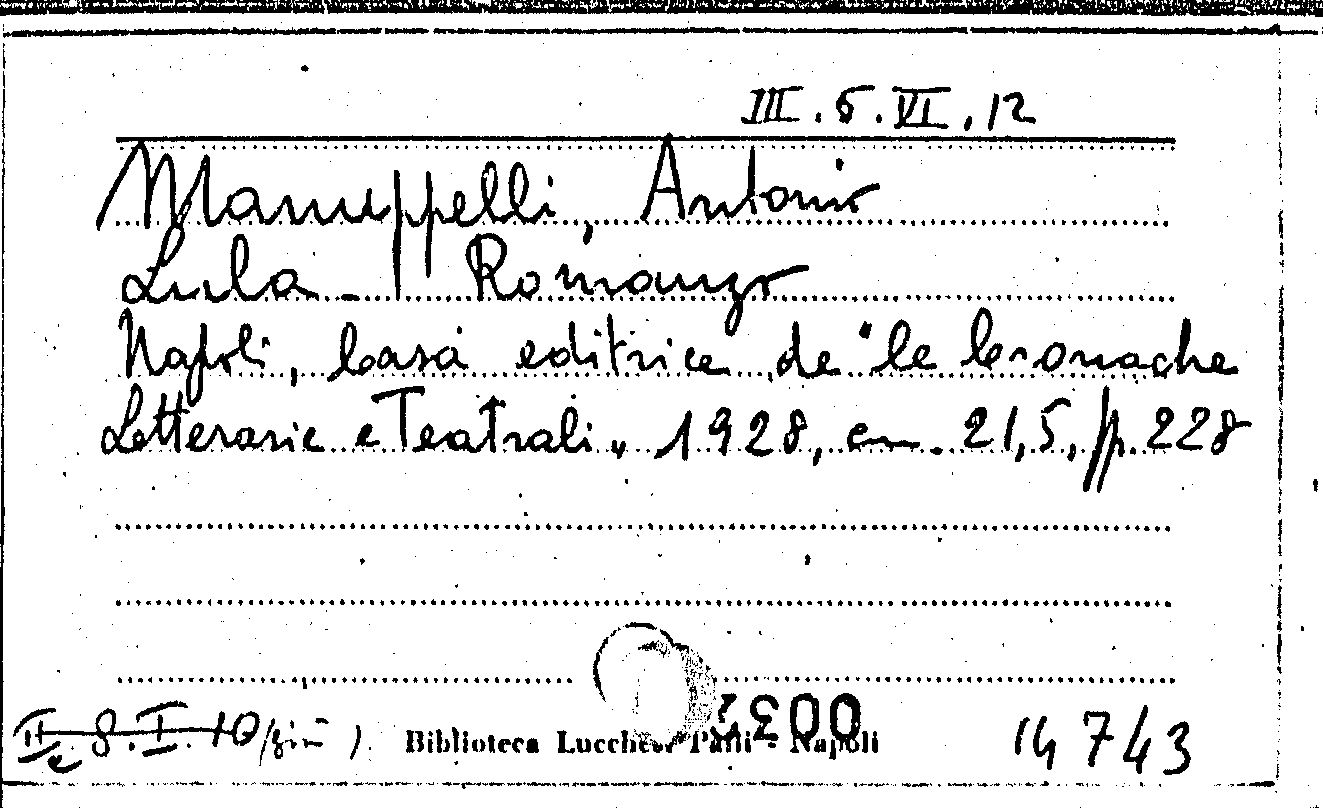 III.5.VI.12
Manuppelli, Antonio
Lula - Romanzo
Napoli, Casa editrice de "le Cronache
Letterarie e Teatrali" 1928, cm. 21,5, pp. 228
8.I.10
Biblioteca Lucchesi Palli - Napoli
14743